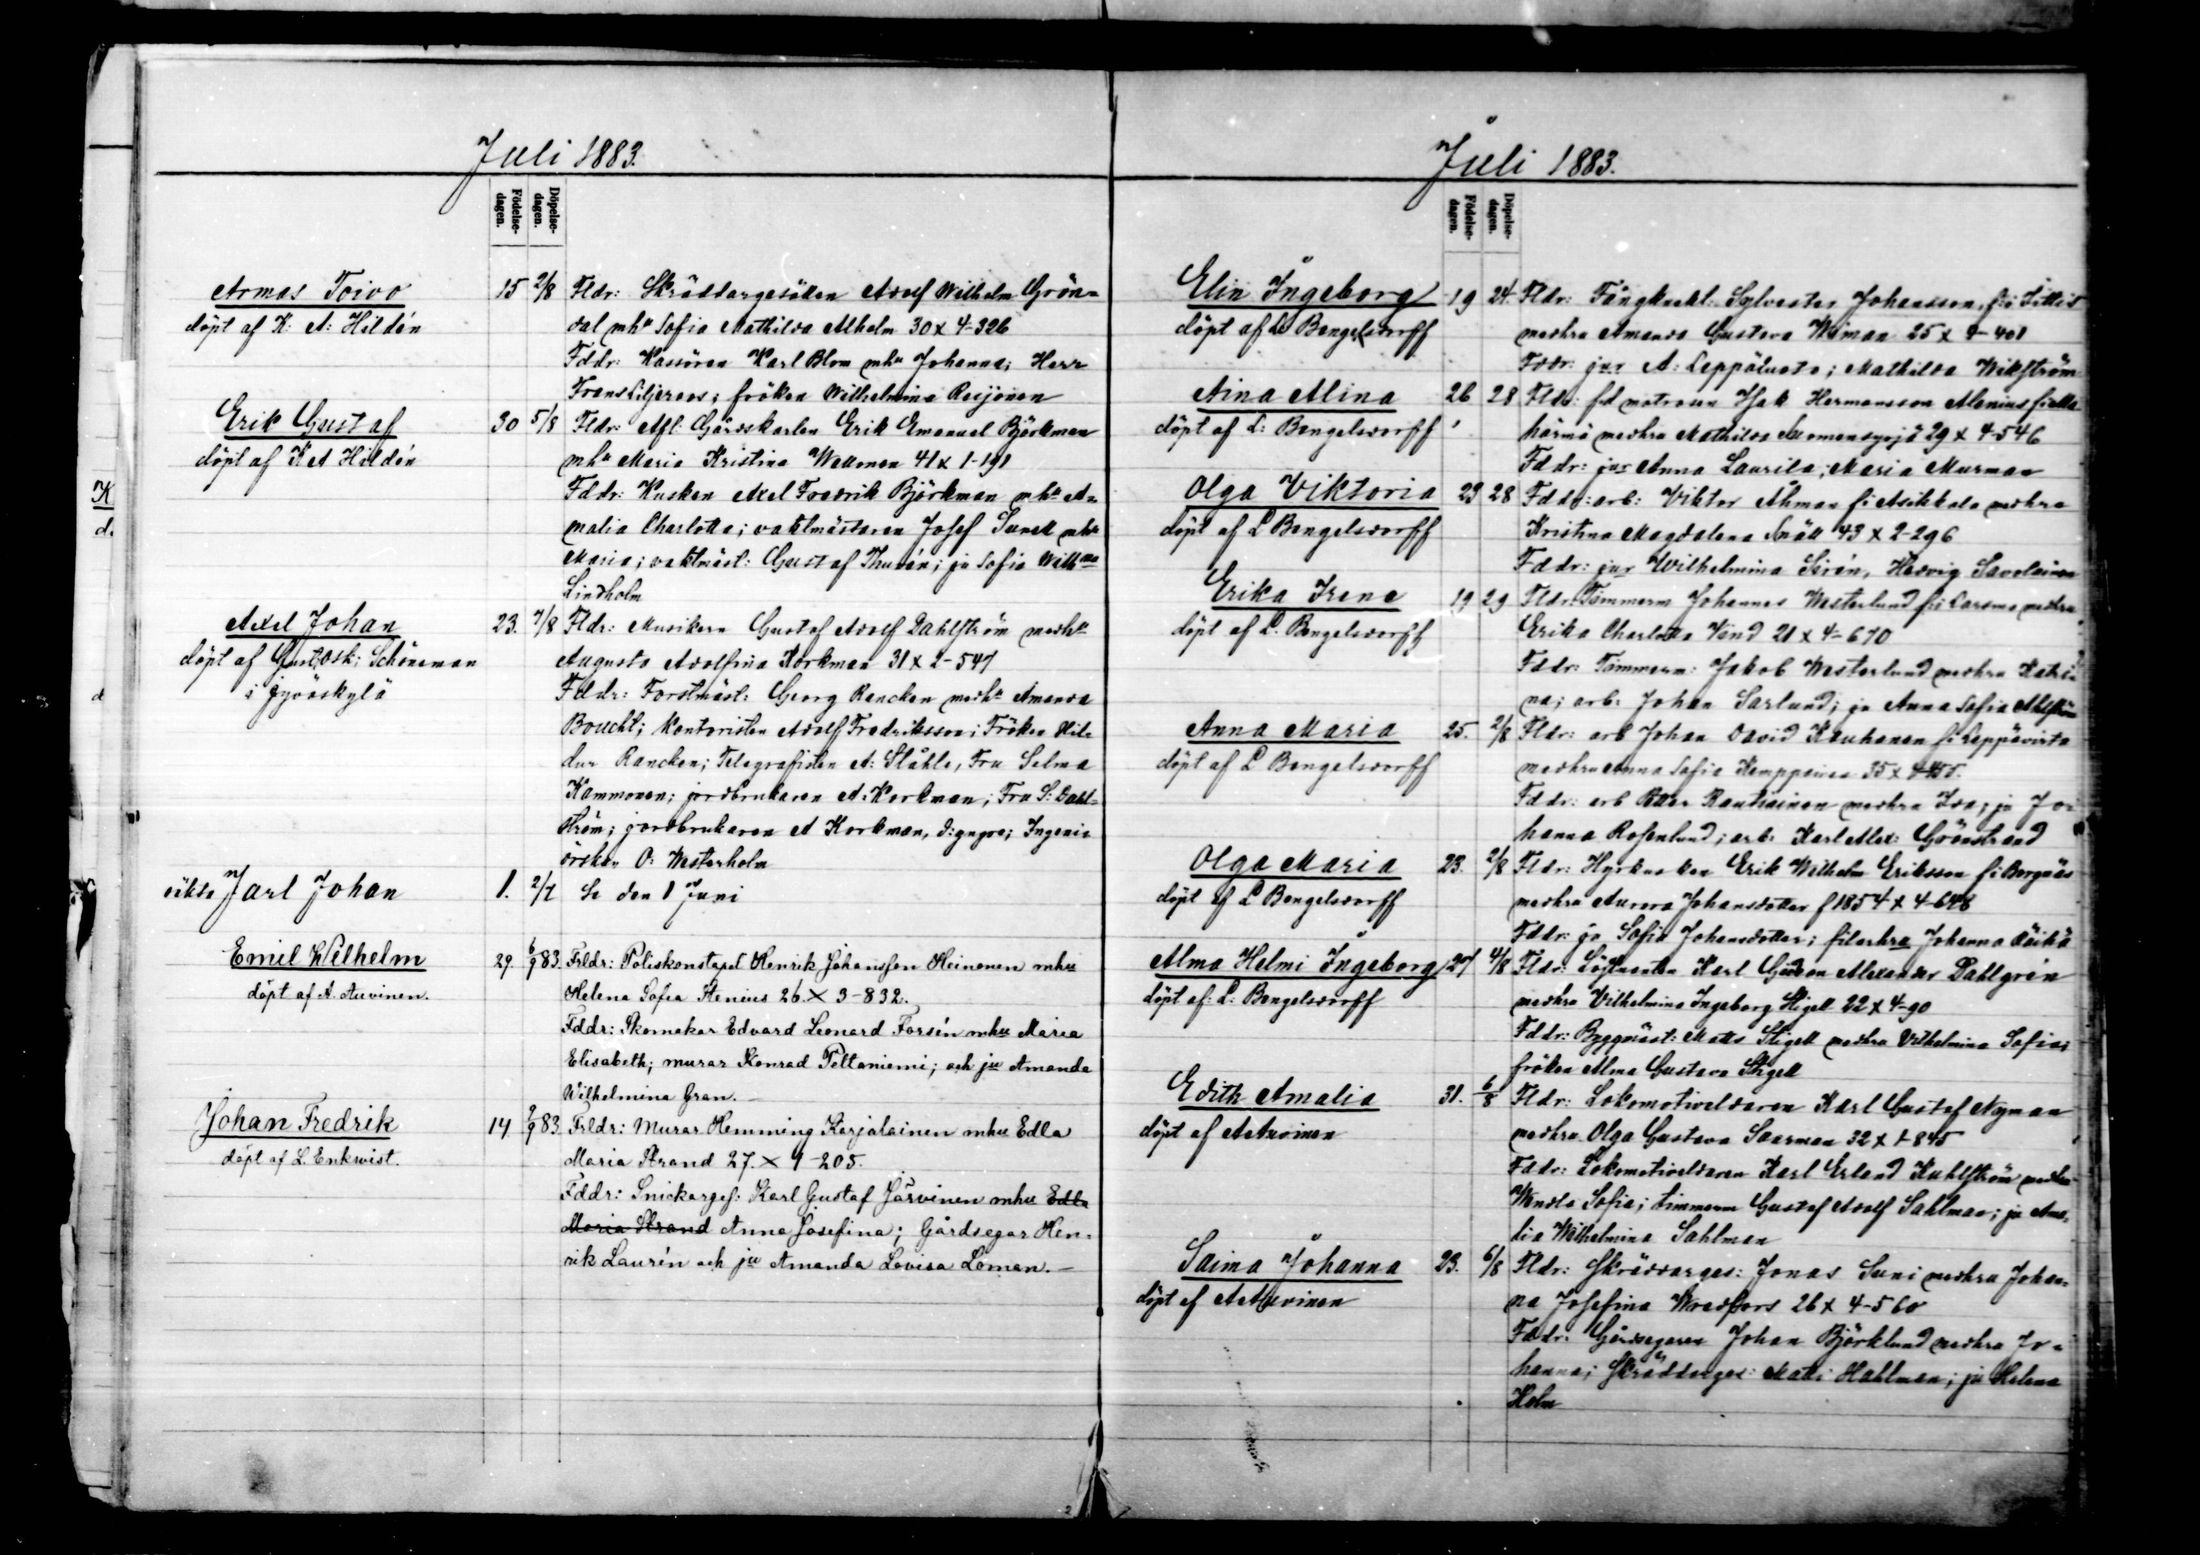 Juli 1883.
Födelse-
dagen.
Döpelse-
dagen.
Armas Toivo
döpt af K. A. Hildén
15 2/8 Fldr: Skräddargesällen Adolf Wilhelm Grön-
dal mhu Sofia Mathilda Alholm 30 x 4-326
Fddr: Kassören Karl Blom mhu Johanna; Herr
Frans Liljeroos; fröken Wilhelmina Reijonen
Erik Gustaf
döpt af K A Hildén
30 5/8 Fldr: Afl. Gårdskarlen Erik Emanuel Björkman
mhu Maria Kristina Wellman 41 x 1-191
Fddr: Kusken Axel Fredrik Björkman mhu A-
malia Charlotta; vaktmästaren Josef Sunell mhu
Maria; vaktmäst: Gustaf Thurén; ja Sofia Willhma
Lindholm
Axel Johan
döpt af Gust. Osk: Schöneman
i Jyväskylä
23. 7/8 Fldr: Musikern Gustaf Adolf Dahlström medhu
Augusta Adolfina Korkman 31 x 2-547
Fddr: Forstmäst: Georg Rancken medhu Amanda
Boucht; Kontoristen Adolf Fredriksson; Fröken Hil-
dur Rancken; Telegrafisten A: Ståhle, Fru Selma
Kammonen; jordbrukaren A: Korkman; Fru S: Dahl-
ström; jordbrukaren A Korkman, d:yngre; Ingeni-
örskan O: Westerholm
äkta Jarl Johan
1. 2/7 Se den 1 Juni
Emil Wilhelm
döpt af A. Auvinen.
29. 6/9 83. Frldr: Poliskonstapel Henrik Johansson Heinonen mhu
Helena Sofia Stenius 26. x 3-832.
Fddr: Skomakar Edvard Leonard Forsén mhu Maria
Elisabeth; murar Konrad Peltoniemi; och ju Amanda
Wilhelmina Gran. —
Johan Fredrik
döpt af L. Enkvist.
14 9/9 83. Frldr: Murar Hemming Karjalainen mhu Edla
Maria Strand 27. x 1-205.
Fddr: Snickarges: Karl Gustaf Järvinen mhu Edla
Maria Strand Anna Josefina; Gårdsegar Hen-
rik Laurén och ju Amanda Lovisa Loman. —
Juli 1883.
Födelse-
dagen.
Döpelse-
dagen.
Elin Ingeborg
döpt af L: Bengelsdorff
19 24 Fldr: Fångknekt: Sylvester Johansson, fr:
medhru Amanda Gustava Wiman 25 x 4-401
Fddr: jur A: Leppäluoto; Mathilda Wikström
Aina Alina
döpt af L: Bengelsdorff
26 28 Fldr: fd matrosen Isak Hermansson Alenius
härmä medhru Mathilda 29 x 4-546
Fddr: jur Anna Laurila; Maria Murman
Olga Viktoria
döpt af L Bengelsdorff
23 28 Fddr: arb: Viktor Åhman fr: Asikkala medhru
Kristina Magdalena Snäll 43 x 2-296
Fddr: jur Wilhelmina Sirén, Hedvig Savolainen
Erika Irene
döpt af L. Bengelsdorff
19 29 Fldr: Timmerm Johannes Westerlund fr: Larsmo medhru
Erika Charlotta Vind 21 x 4-670
Fddr: Timmerm: Jakob Westerlund medhru Katri-
na; arb: Johan Sarlund; ja Anna Sofia Ahlström
Anna Maria
döpt af L Bengelsdorff
25. 2/8 Fldr: arb Johan David Kauhanen fr Leppävirta
medhru Anna Sofia Kemppainen 35 x 4-455.
Fddr: arb Petter Rautiainen medhru Ida; ja Jo-
hanna Rosenlund; arb: Karl Alex: Grönstrand
Olga Maria
döpt af L Bengelsdorff
23. 2/8 Fldr: Hyrkusken Erik Wilhelm Eriksson fr: Borgnäs
medhru Aurora Johansdotter f 1854 x 4-648
Fddr: jo Sofia Johansdotter; filarhru Johanna Räikä
Alma Helmi Ingeborg
döpt af: L: Bengelsdorff
27 4/8 Fldr: Löjtnanten Karl Gideon Alexander Dahlgrén
medhru Vilhelmina Ingeborg Stigell 22 x 4-90
Fddr: Byggmäst: Matts Stigell medhru Vilhelmina Sofia;
fröken Alma Gustava Stigell
Edith Amalia
döpt af A Auvinen
31. 6/8 Fldr: Lokomotiveldaren Karl Gustaf Nyman
medhru Olga Gustava Saarman 32 x 1-845
Fddr: Lokomotiveldaren Karl Erland Kuhlström medhru
Wendla Sofia; timmerm Gustaf Adolf Sahlman; ju Ama-
lia Wilhelmina Sahlman
Saima Johanna
döpt af A Auvinen
23. 6/8 Fldr: Skräddarges: Jonas Suni medhru Johan-
na Josefina Wredfors 26 x 4-560
Fddr: Gårdsegaren Johan Björklund medhru Jo-
hanna; Skräddarges: Matti Hahlman; ju Helena
Holm